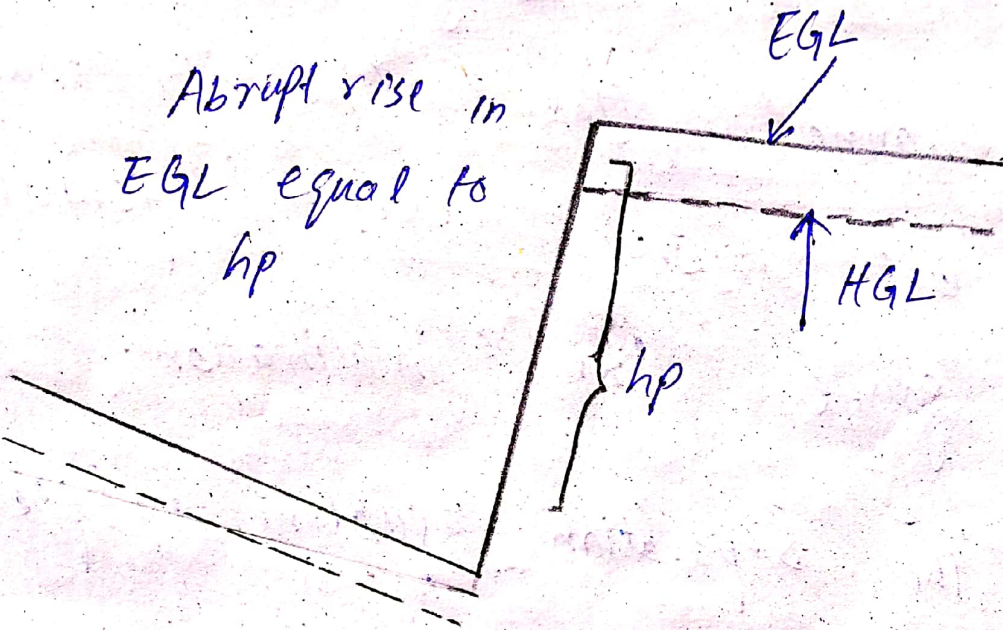 EGL
Abrupt rise in
EGL equal to
hp
HGL
hp